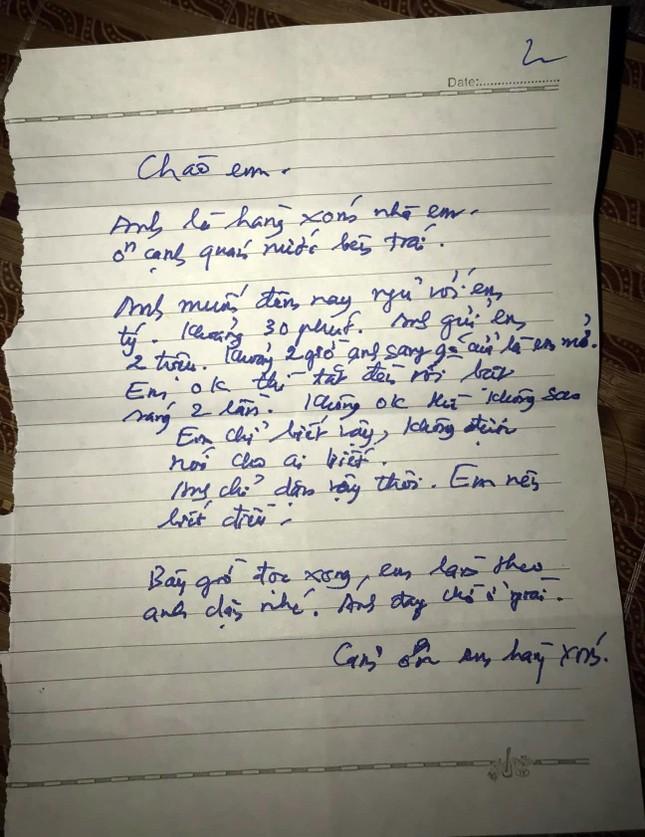 2
Date:........................
Chào em.
Anh là hàng xóm nhà em.
ở cạnh quán nước bên trái.
Anh muốn đêm nay ngủ với em
tý. Khoảng 30 phút. Anh gửi em
2 triệu. Khoảng 2 giờ anh sang gõ cửa là em mở.
Em ok thì tắt đèn rồi bật
sáng 2 lần. Không ok thì không sao
Em chỉ biết vậy, không được
nói cho ai biết.
Anh chỉ dặn vậy thôi. Em nên
biết điều.
Bây giờ đọc xong, em làm theo
anh dặn nhé. Anh đang chờ ở ngoài.
Cảm ơn em hàng xóm.